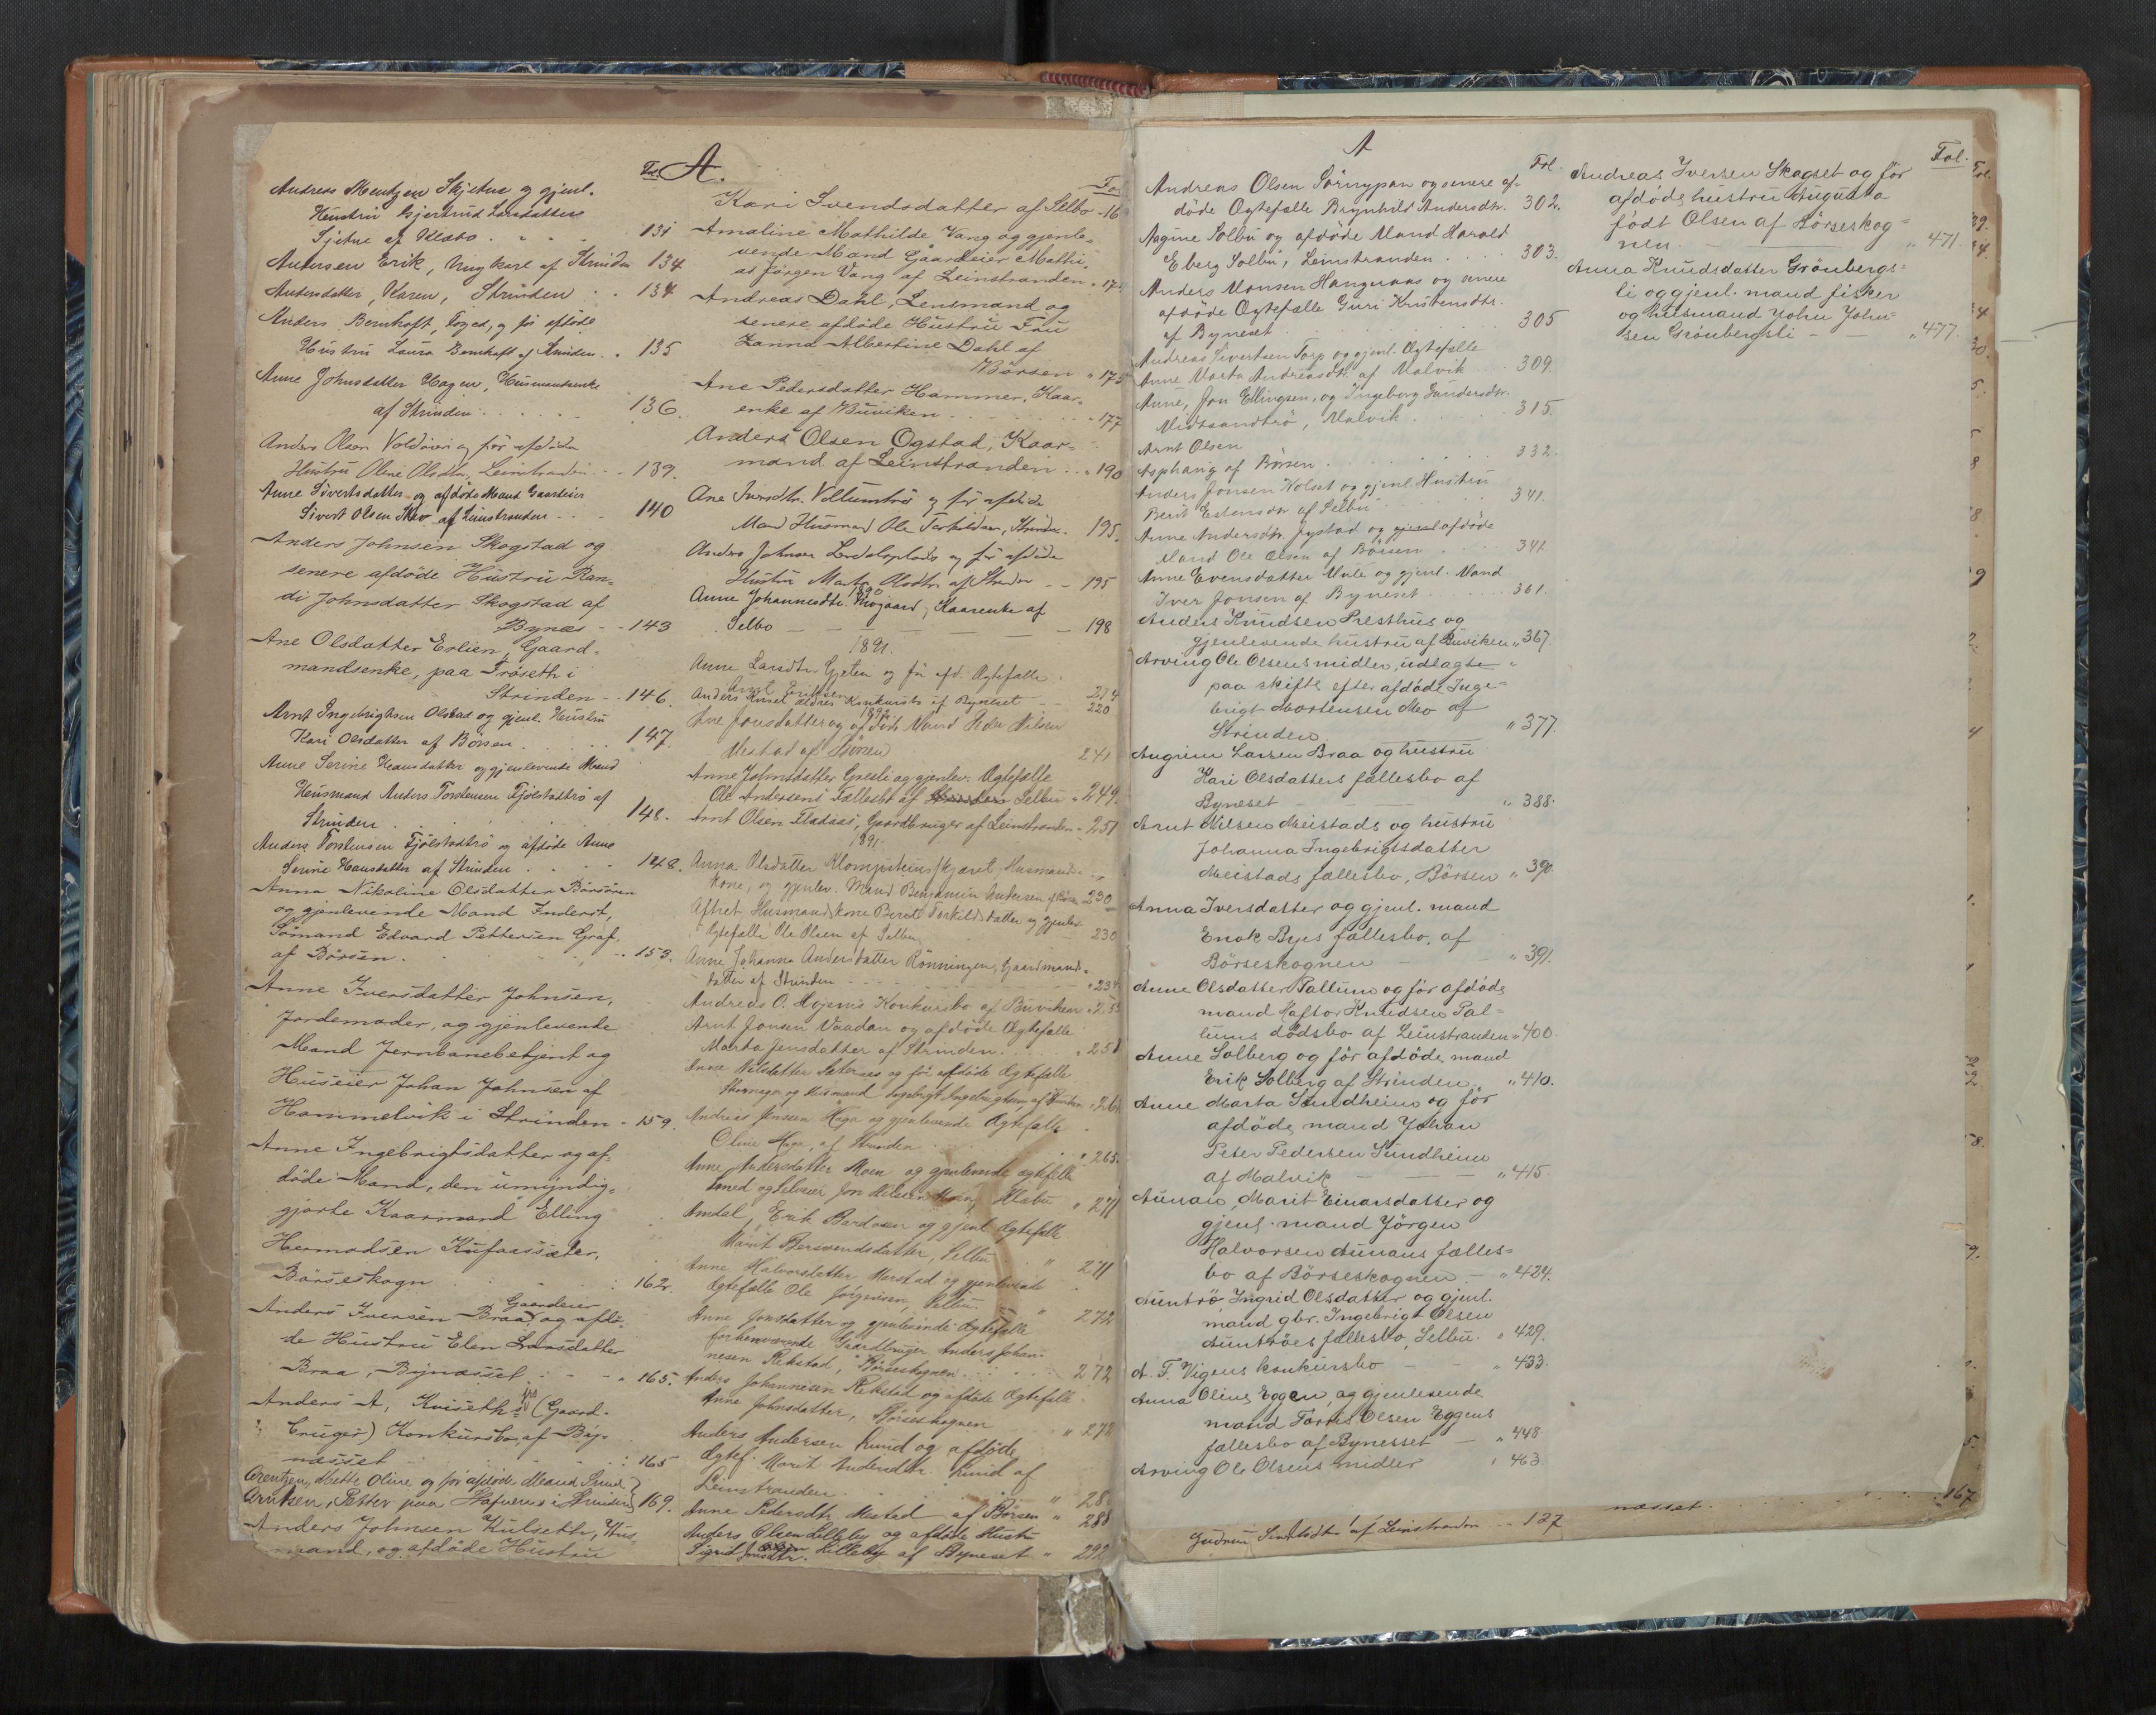 Fol. A.
Andreas Mentzen Skjetne og gjenl.
Hustru Gjertrud Larsdatter
Sjetne af Klæbo . 131
Andersen Erik, Ungkarl af Strinden 134
Andersdatter, Karen, Strinden . . 134
Anders Bernhoft, Foged, og før afdöde
Hustru Laura Bernhoft af Strinden . 135
Anne Johnsdatter Hagen, Husmandsenke
af Strinden . . . . 136.
Anders Olsen Voldöien og för afdöde
Hustru Olene Olsdtr. Leinstranden - - 139.
Anne Sivertsdatter og afdöde Mand Gaardeier
Sivert Olsen Mæo af Leinstranden - - - 140
Anders Johnsen Skogstad og
senere afdöde Hustru Ran-
di Johnsdatter Skogstad af
Bynæs - - 143
Ane Olsdatter Erlien, Gaard-
mandsenke, paa Tröseth i
Strinden - . 146.
Arnt Ingebrigtsen Olstad og gjenl. Hustru
Kari Olsdatter af Börsen . . . 147.
Anne Serine Hansdatter og gjenlevende Mand
Husmand Anders Torstensen Fjölstadtrö af
Strinden . . . . 148.
Anders Torstensen Fjölstadtrö og afdöde Anne
Serine Hansdatter af Strinden . . 148.
Anna Nikoline Olsdatter Börsören
og gjenlevende Mand Inderst,
Sömand Edvard Pettersen Graf,
af Börsen. - - - - 153.
Anne Iversdatter Johnsen,
Jordemoder, og gjenlevende
Mand Jernbanebetjent og
Huseier Johan Johnsen af
Hommelvik i Strinden - 159.
Anne Ingebrigtsdatter og af-
döde Mand, den umyndig-
gjorte Kaarmand Elling
Hermodsen Kufaassæter,
Börseskogn . . . : 162.
Anders Iversen Braa, Gaardeier og afdö-
de Hustru Elen Larsdatter
Braa, Bynæsset - - - 165.
Anders A, Kviseths (Gaard-
bruger) Konkursbo, af By-
næsset : 165
Arentzen, Mette Oline og før afdöde Mand Smed
Arntsen, Petter paa Hafverens i Strinden 169.
Anders Johnsen Kulseth, Hus-
mand, og afdöde Hustru
Fol.
Kari Svendsdatter af Selbo - 16
Amaline Mathilde Vang og gjenle-
vende Mand Gaardeier Mathi-
as Jörgen Vang af Leinstranden . 17
Andreas Dahl, Lensmand og
senere afdöde Hustru Fru
Hanna Albertine Dahl af
Börsen " 175
Ane Pedersdatter Hammer, Kaar-
enke af Buviken . . . 177
Anders Olsen Ogstad, Kaar-
mand af Leinstranden . . . 190
Ane Iversdtr. Vollumströ og för afdöde
Mand Husmand Ole Torkildsen, Strinden . 195.
Anders Johnsen Lerdalsplads og för afdöde
Hustru Marta Olsdtr. af Strinden - - 195
1890
Anne Johannesdtr. Mogaard, Kaarenke af
Selbo — — — 198
1891.
Anne Larsdtr. Gjeten og för afd. Ægtefælle
Arnt Eriksen 214
Anders Rinset ældres Konkursbo af Byneset - - 220
1892
Ane Jonsdatter og afdöde Mand Peder Nilsen
Mestad af Börsen 241
Anne Johnsdatter Gresli og gjenlev. Ægtefælle
Ole Andersens Fællesbo af Strinden Selbu " 249.
Arnt Olsen Fladaas, Gaardbruger af Leinstranden - 251
1891.
Anna Olsdatter Klompsteinskjæret, Husmands-
kone, og gjenlev. Mand Benjamin Andersen af Börsen 230
Aftret, Husmandskone Berit Torkildsdatter og gjenlev.
Ægtefælle Ole Olsen af Selbu 230
Anne Johanna Andersdatter Rönningen, Gaardmands-
datter af Strinden - - - - 234
Andreas O. Hojems Konkursbo af Buviken . 253
Arnt Jonsen Vaadan og afdöde Ægtefælle
Marta Jensdatter af Strinden. . . . . 258
Anne Nilsdatter Sæternes og för afdöde Ægtefælle
Skomager og Husmand Ingebrigt Ingebrigtsen af Strinden . 261
Andreas Jensen Haga og gjenlevende Ægtefælle
Oline Haga, af Strinden . . . . " 265.
Anne Andersdatter Moen og gjenlevende ægtefælle
Smed og Selveier Jon Nilsen Moen, Klæbu " 271
Amdal, Erik Bardosen og gjenl. Ægtefælle
Marit Bersvendsdatter, Selbu . . " 271
Anne Halvorsdatter Marstad og gjenlevende
Ægtefælle Ole Jörgensen, Selbu. - " 272
Anne Jonsdatter og gjenlevende Ægtefælle
forhenværende Gaardbruger Anders Johan-
nesen Rekstad, Börseskognen . . . . 272
Anders Johannesen Rekstad og afdöde Ægtefælle
Anne Johnsdatter, Börseskognen " " 278
Anders Andersen Lund og afdöde
Ægtef. Marit Andersdtr. Lund af
Leinstranden . . . . " 28
Anne Pedersdtr Mestad af Börsen " 288
Anders Olsen Lilleby og afdöde Hustru
Sigrid Jonsdtr. Lilleby af Byneset " 292
A
Fol.
Andreas Olsen Sörnypan og senere af-
döde Ægtefælle Brynhild Andersdtr. 302.
Aagine Solbu og afdöde Mand Harald
Eberg Solbu, Leinstranden . . . 303.
Anders Monsen Hangraas og senere
afdöde Ægtefælle Guri Kristensdtr.
af Byneset . . . . 305
Andreas Sivertsen Torp og gjenl. Ægtefælle
Anne Marta Andreasdtr. af Malvik . . 309.
Aune, Jon Ellingsen, og Ingeborg Gundersdtr.
Midtsandtrö, Malvik . . 315.
Arnt Olsen
Asphaug af Börsen . . . . 332.
Anders Jonsen Kolset og gjenl. Hustru
Berit Estensdtr af Selbu . . . 341.
Anne Andersdtr. Jystad og gjenl afdöde
Mand Ole Olsen af Börsen . . . 341.
Anne Evensdatter Mule og gjenl. Mand
Iver Jonsen af Byneset . . . . 361.
Anders Knudsen Presthus og
gjenlevende hustru af Buviken " 367
Arving Ole Olsens midler, udlagte
paa skifte efter afdöde Inge-
brigt Mortensen Mo af
Strinden " 377.
Angrim Larsen Braa og hustru
Kari Olsdatters fællesbo af
Byneset — — " 388.
Arnt Nilsen Meistads og hustru
Johanna Ingebrigtsdatter
Meistads fællesbo, Börsen " 390.
Anna Iversdatter og gjenl. mand
Enok Byes fællesbo, af
Börseskognen — — " 391.
Anne Olsdatter Tallum og för afdöde
mand Haftor Knudsen Tal-
lums dödsbo af Leinstranden " 400.
Anne Solberg og för afdöde mand
Erik Solberg af Strinden. " 410.
Anne Marta Sundheim og för
afdöde mand Johan
Peter Pedersen Sundheim
af Malvik — — " 415.
Aunan, Marit Einarsdatter og
gjenl. mand Jörgen
Halvorsen Aunans fælles-
bo af Börseskognen - " 424.
Auntrö, Ingrid Olsdatter og gjenl.
mand gbr. Ingebrigt Olsen
Auntröes fællesbo, Selbu. " 429.
A. F. Vigens konkursbo — - " 433.
Anna Oline Eggen, og gjenlevende
mand Torris Olsen Eggens
fællesbo af Bynesset — " 448.
Arving Ole Olsens midler " 463.
127
Fol.
Andreas Iversen Skagset og för
afdöde hustru Augusta
födt Olsen af Börseskog-
nen. — " 471.
Anna Knudsdatter Grönbergs-
li og gjenl. mand fisker
og husmand John John-
sen Grönbergsli — " 477.
næsset . . . . 167.